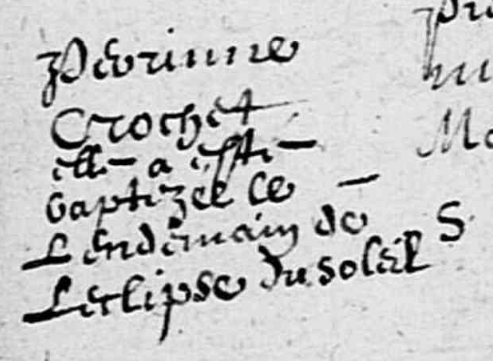 Perinne
Crochet
elle a esté
baptizée le
Lendemain de
Leclipse du soleil